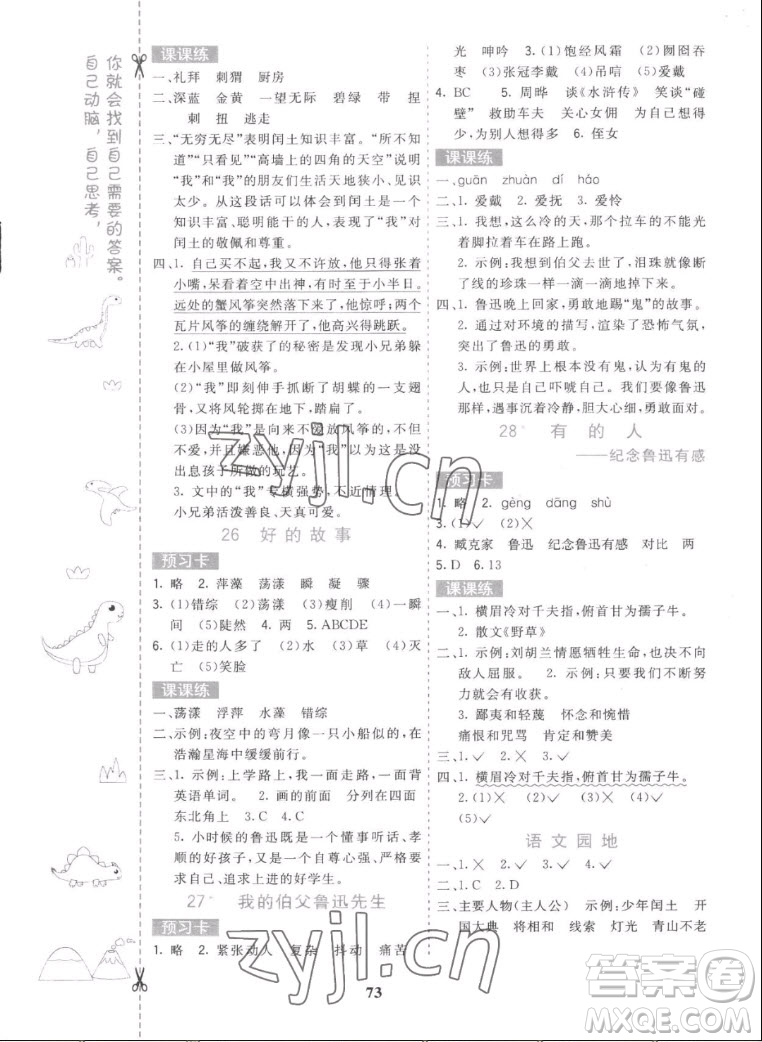 你就会找到自己需要的答案。
自己动脑，自己思考，
课课练
一、礼拜 刺猬 厨房
二、深蓝 金黄 一望无际 碧绿 带 捏
刺 扭 逃走
三、“无穷无尽”表明闰土知识丰富。“所不知
道”“只看见”“高墙上的四角的天空”说明
“我”和“我”的朋友们生活天地狭小、见识
太少。从这段话可以看出：闰土是一个
知识丰富、聪明能干的人，表现了“我”对
闰土的敬佩和尊重。
四、1. 自己买不起，我又不许放，他只得张着
小嘴，呆看着空中出神，有时至于小半日。
远处的蟹风筝突然落下来了，他惊呼；两个
瓦片风筝的缠绕解开了，他高兴得跳跃。
2. (1)“我”破获了的秘密是小兄弟躲
在小屋里做风筝。
(2)“我”即刻伸手折断了胡蝶的一支翅
骨，又将风轮掷在地下，踏扁了。
(3)因为“我”是向来不爱放风筝的，不但
不爱，并且嫌恶他，因为“我”以为这是没
出息孩子所做的玩艺。
3. 文中的“我”专横强势，不近情理。
小兄弟活泼善良、天真可爱。
26 好的故事
预习卡
1. 略 2. 萍藻 荡漾 瞬 凝 骤
3. (1)错综 (2)荡漾 (3)瘦削 (4)一瞬
间 (5)陡然 4. 两 5. ABCDE
6. (1)走的人多了 (2)水 (3)草 (4)灭
亡 (5)笑脸
课课练
一、荡漾 浮萍 水藻 错综
二、示例：夜空中的弯月像一只小船似的，在
浩瀚星海中缓缓前行。
三、1. 示例：上学路上，我一面走，一面背
英语单词。 2. 画的前面 分列在四面
东北角上 3. C 4. C
5. 小时候的鲁迅既是一个懂事听话、孝
顺的好孩子，又是一个勤奋上进、严格律
己、追求上进的好学生。
27 我的伯父鲁迅先生
预习卡
1. 略 2. 紧张动人 复杂 抖动 痛苦
光 呻吟 3. (1)饱经风霜 (2)囫囵吞
枣 (3)张冠李戴 (4)吊唁 (5)爱戴
4. BC 5. 周晔 谈《水浒传》 笑谈“碰
壁” 救助车夫 关心女佣 为自己想得
少，为别人想得多 6. 侄女
课课练
一、guān zhuàn dí háo
二、1. 爱戴 2. 爱抚 3. 爱怜
三、1. 我想，这么冷的天，那个拉车的不能光
着脚拉着车在路上跑。
2. 示例：想到伯父去世了，泪珠就像断了
线的珍珠一样一滴一滴地往下掉。
四、1. 鲁迅晚上回家，勇敢地踢“鬼”的故事。
2. 通过对环境的描写，渲染了恐怖气氛，
突出了鲁迅的勇敢。
3. 示例：世界上根本没有鬼，所有的鬼
的人，都是自己吓唬自己。我们要像鲁迅
样，遇事沉着冷静，胆大心细，勇敢面对。
28 有的人
——纪念鲁迅有感
预习卡
1. 略 2. gèng dāng shù
3. (1)✓ (2)✕
4. 臧克家 鲁迅 纪念鲁迅有感 对比 两
5. D 6. 13
课课练
一、1. 横眉冷对千夫指，俯首甘为孺子牛。
2. 散文《野草》
二、1. 示例：刘胡兰情愿牺牲生命，也决不向
敌人屈服。 2. 示例：只要我们不断努
力就会有收获。
3. 鄙夷和轻蔑 怀念和惋惜
痛恨和咒骂 肯定和赞美
三、1. ✓ 2. ✕ 3. ✓ 4. ✓
四、1. 横眉冷对千夫指，俯首甘为孺子牛。
2. (1)✓ (2)✕ (3)✕ (4)✓
(5)✓
语文园地
一、1. ✕ 2. ✓ 3. ✓ 4. ✓
二、1. C 2. D
三、主要人物(主人公) 示例：少年闰土 开
国大典 将相和 线索 灯光 青山不老
73
zyjl.cn
zyjl.cn
答案圈
MXQE.COM